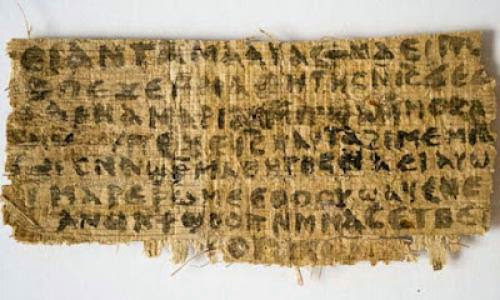 ⲉⲓ ⲁⲛ ⲧⲁⲙⲁⲁⲩ ⲁⲥϯ ⲛⲁⲉⲓ ⲡ
ⲡⲉϫⲉ ⲙⲙⲁⲑⲏⲧⲏⲥ ⲛⲓⲥ ϫⲉ ⲥ
ⲁⲣⲛⲁ ⲙⲁⲣⲓⲁⲙ ⲙⲡϣⲁ ⲙⲙⲟⲥ ⲁ
ⲡⲉϫⲉ ⲓⲥ ⲛⲁⲩ ⲧⲁϩⲓⲙⲉ ⲙⲛ
ⲥⲛⲁϣⲣⲙⲁⲑⲏⲧⲏⲥ ⲛⲁⲉⲓ ⲁⲩⲱ
ⲓ ⲙⲁⲣⲉⲣⲱⲙⲉ ⲉⲑⲟⲟⲩ ϣⲁϥⲉ ⲛⲉ
ⲁⲛⲟⲕ ϯϣⲟⲟⲡ ⲛⲙⲙⲁⲥ ⲉⲧⲃⲉ